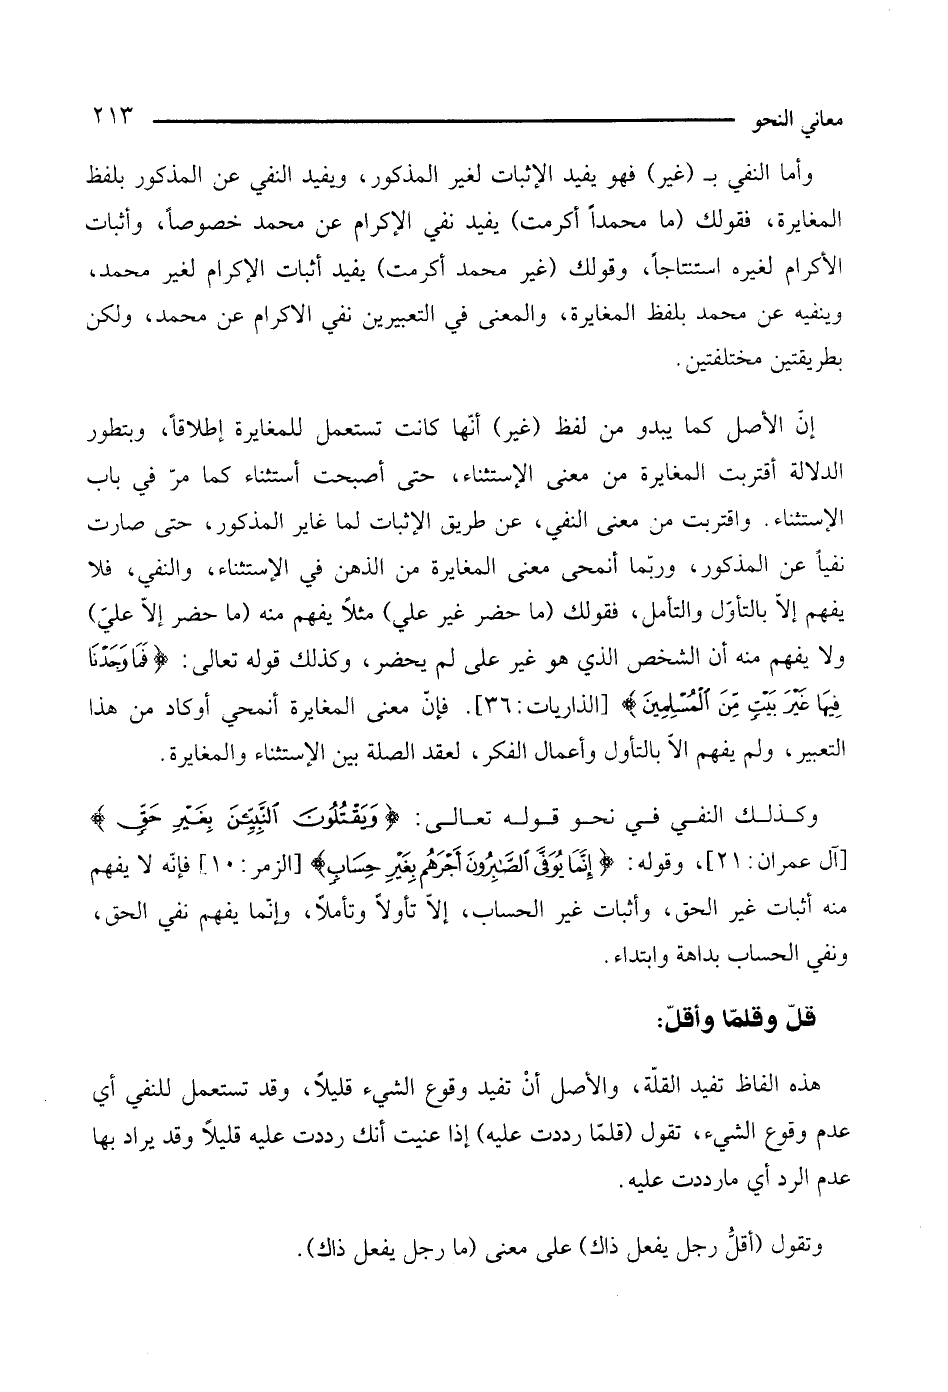 معاني النحو ٢١٣
وأما النفي بـ (غير) فهو يفيد الإثبات لغير المذكور، ويفيد النفي عن المذكور بلفظ
المغايرة، فقولك (ما محمداً أكرمت) يفيد نفي الإكرام عن محمد خصوصاً، وأثبات
الأكرام لغيره استنتاجاً، وقولك (غير محمد أكرمت) يفيد أثبات الإكرام لغير محمد،
وينفيه عن محمد بلفظ المغايرة، والمعنى في التعبيرين نفي الاكرام عن محمد، ولكن
بطريقتين مختلفتين.
إنّ الأصل كما يبدو من لفظ (غير) أنّها كانت تستعمل للمغايرة إطلاقاً، وبتطور
الدلالة أقتربت المغايرة من معنى الإستثناء، حتى أصبحت أستثناء كما مرّ في باب
الإستثناء. واقتربت من معنى النفي، عن طريق الإثبات لما غاير المذكور، حتى صارت
نفياً عن المذكور، وربّما أنمحى معنى المغايرة من الذهن في الإستثناء، والنفي، فلا
يفهم إلاّ بالتأوّل والتأمل، فقولك (ما حضر غير علي) مثلاً يفهم منه (ما حضر إلاّ عليّ)
ولا يفهم منه أن الشخص الذي هو غير على لم يحضر، وكذلك قوله تعالى: ﴿فَمَا وَجَدْنَا
فِيهَا غَيْرَ بَيْتٍ مِّنَ ٱلْمُسْلِمِينَ﴾ [الذاريات: ٣٦]. فإنّ معنى المغايرة أنمحي أوكاد من هذا
التعبير، ولم يفهم الاّ بالتأول وأعمال الفكر، لعقد الصلة بين الإستثناء والمغايرة.
وكذلك النفي في نحو قوله تعالى: ﴿وَيَقْتُلُونَ ٱلنَّبِيِّـۧنَ بِغَيْرِ حَقٍّ﴾
[آل عمران: ٢١]، وقوله: ﴿إِنَّمَا يُوَفَّى ٱلصَّـٰبِرُونَ أَجْرَهُم بِغَيْرِ حِسَابٍ﴾ [الزمر: ١٠] فإنّه لا يفهم
منه أثبات غير الحق، وأثبات غير الحساب، إلاّ تأولاً وتأملاً، وإنّما يفهم نفي الحق،
ونفي الحساب بداهة وابتداء.
قلّ وقلمّا وأقلّ:
هذه الفاظ تفيد القلّة، والأصل أنْ تفيد وقوع الشيء قليلاً، وقد تستعمل للنفي أي
عدم وقوع الشيء، تقول (قلمّا رددت عليه) إذا عنيت أنك رددت عليه قليلاً وقد يراد بها
عدم الرد أي مارددت عليه.
وتقول (أقلُّ رجل يفعل ذاك) على معنى (ما رجل يفعل ذاك).